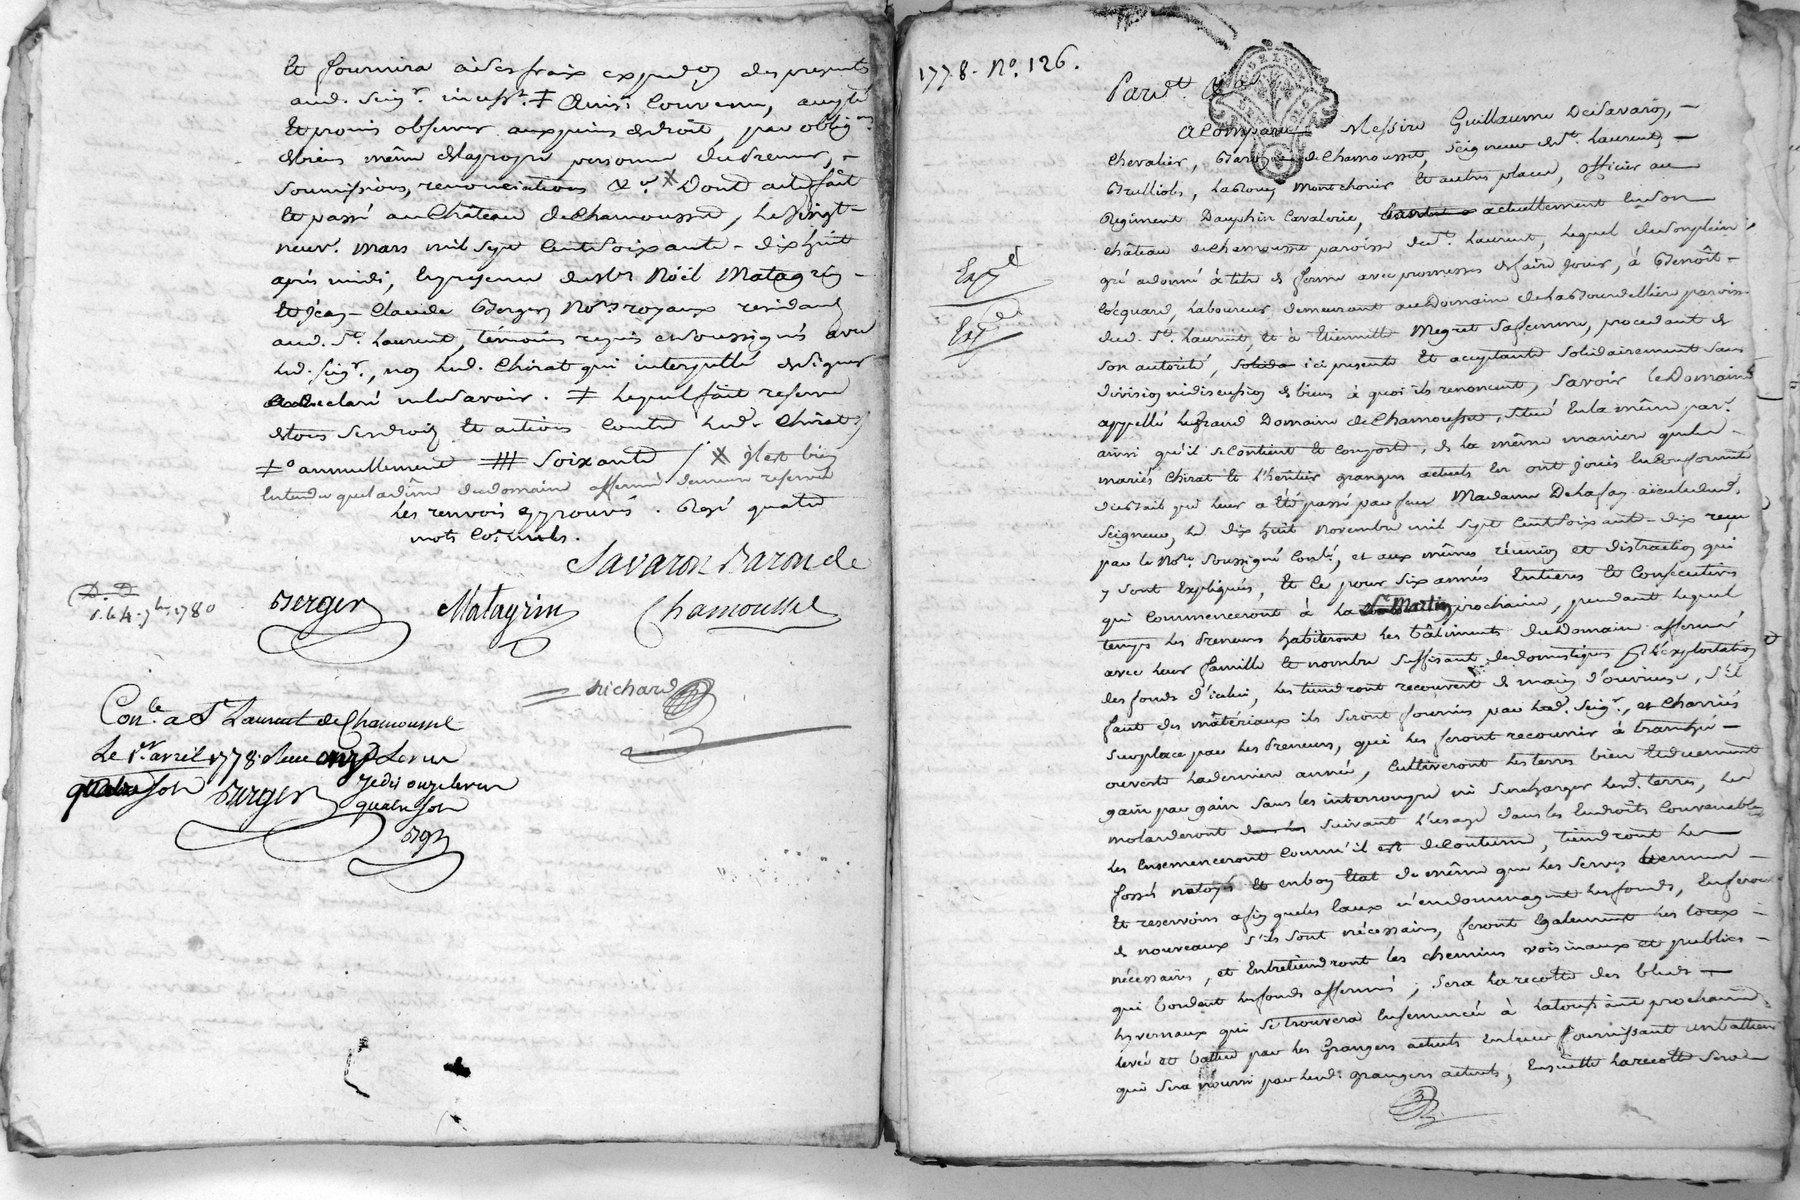 Et fournira à ses fraix expedon des presents
aud. seigr.
Ainsi Convenu, accepté
Et promis observer aux peines de droit, par oblig.on
de biens même de la propre personne du Preneur, -
soumissions, renonciations &a. X Dont acte fait
Et passé au Château de Chamousset, le vingt-
neuf mars mil sept Cent Soixante-dix huit
après midi, en presence de Srs Noël Matagrin
Et Jean-Claude Berger Nores royaux residants
aud. St. Laurent, témoins requis et soussignés avec
led. seigr., non led. Chirat qui interpellé de signer
a declaré ne le savoir. ≠ lequel fait reserve
de tous ses droits Et actions contre led. Chirat
annuellement soixante X il est bien
Entendu que la dime du domaine affermé demeure reservée
Les renvois approuvés. Rayé quatre
mots
Savaron Baron de
Berger Matagrin Chamousset
7bre 1780
Richard
Con.le a St Laurent de Chamousset
Le 1er. avril 1778. Reçu onze Livres
quatre sols Berger
Je dis onze livres
quatre sols
1778. No. 126.
Pardt.
A Comparu Messire Guillaume De Savaron, -
Chevalier, Baron de Chamousset, Seigneur de St. Laurent, -
Brulliolès, La Roue, Montchorier Et autres places, officier au
Regiment Dauphin Cavalerie, actuellement en son
Château de Chamousset paroisse de St. Laurent, lequel de son plein
gré a donné à titre de ferme avec promesses de faire jouir, à Benoît-
Cocquard, Laboureur, demeurant au Domaine de la Bourdelliere paroisse
dud. St. Laurent, Et à Etiennette Megret sa femme, procedant de
son autorité, ici presents Et acceptants solidairement sans
division ni discussion de biens à quoi ils renoncent, Savoir le Domaine
appellé le grand Domaine de Chamousset, situé En la même par.
ainsi qu'il se Contient Et Comporte, de la même maniere que les
mariés Chirat Et l'héritier grangers actuels En ont joui En conformité
du Bail qui leur a été passé par feue Madame De Lafay aieule dud.
Seigneur, le dix huit Novembre mil sept Cent Soixante-dix reçu
par le Nore. Soussigné Conlé, et aux mêmes réunion et distraction qui
y sont Expliqués, Et Ce pour six années Entieres Et Consécutives
qui Commenceront à la St Martin prochaine, pendant lequel
temps les Preneurs habiteront les bâtiments du Domaine affermé
avec leur famille Et nombre suffisant de domestiques pr l'exploitation
des fonds d'icelui, les tiendront recouverts de main d'ouvriers, s'il
faut des matériaux ils seront fournis par led. Seigr., et Charriés
sur place par les Preneurs, qui les feront recouvrir à tranché -
ouverte la derniere année, Cultiveront les terres bien Et duement
gain par gain sans les interrompre ni surcharger lesd. terres, les
suivant l'usage dans les Endroits Convenables
les Ensemenceront Comm'il est de Coutume, tiendront les
fossés netoyés Et en bon Etat de même que les serves
Et reservoirs afin que les Eaux n'endommagent les fonds, En feront
de nouveaux s'ils sont nécessaires, feront Egalement les
nécessaires, et Entretiendront les chemins voisinaux et publics -
qui bordent les fonds affermés; sera la recolte des bleds -
hyvernaux qui se trouvera Ensemencée à la toussaint prochaine
levée et battue par les grangers actuels En leur fournissant un batteur
qui sera nourri par lesd. grangers actuels, Ensuitte la recolte sera